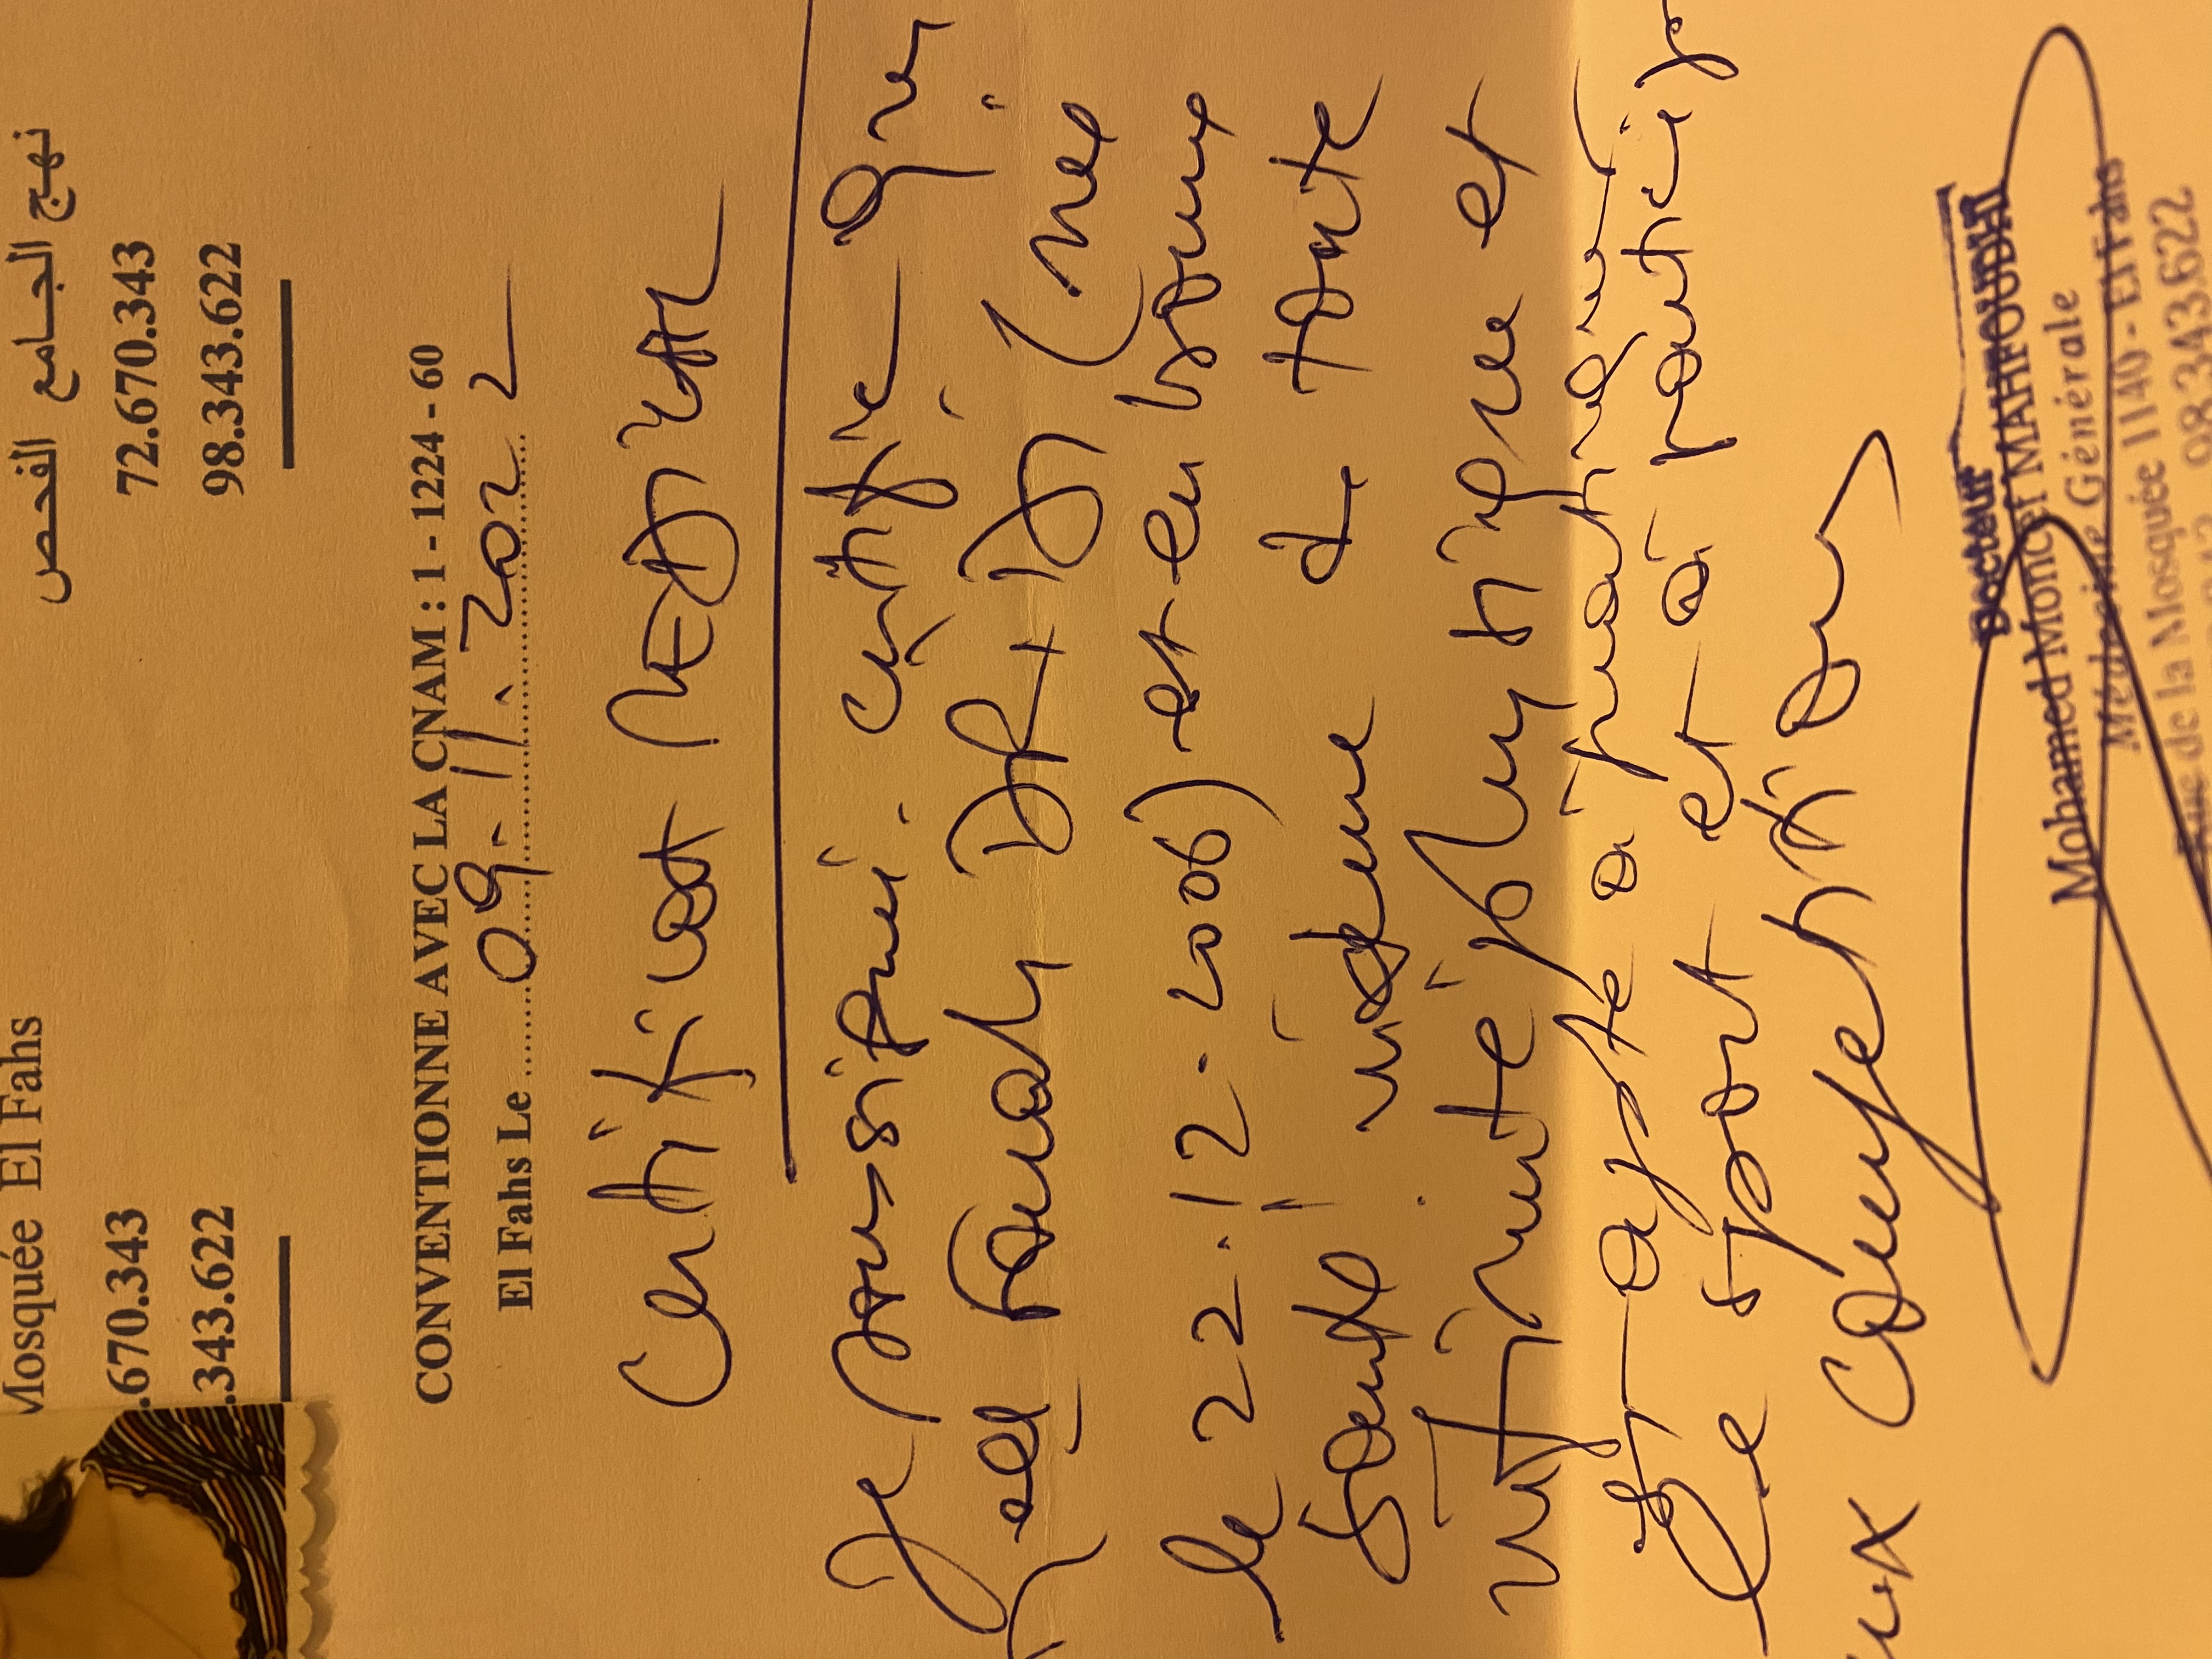 Mosquée El Fahs نهج الجامع الفحص
.670.343 72.670.343
.343.622 98.343.622
CONVENTIONNE AVEC LA CNAM : 1 - 1224 - 60
El Fahs Le 09.11.2022
Certificat MEDICAL
Je soussigné. certifie que
(née
le 22.12.2006) est en bonne
santé indemne de toute
infirmité physique et
est apte à
le sport et à particip
aux compétition
Docteur
Mohamed Moncef MAHFOUDHI
Médecine Générale
Rue de la Mosquée 1140 - El Fahs
98.343.622